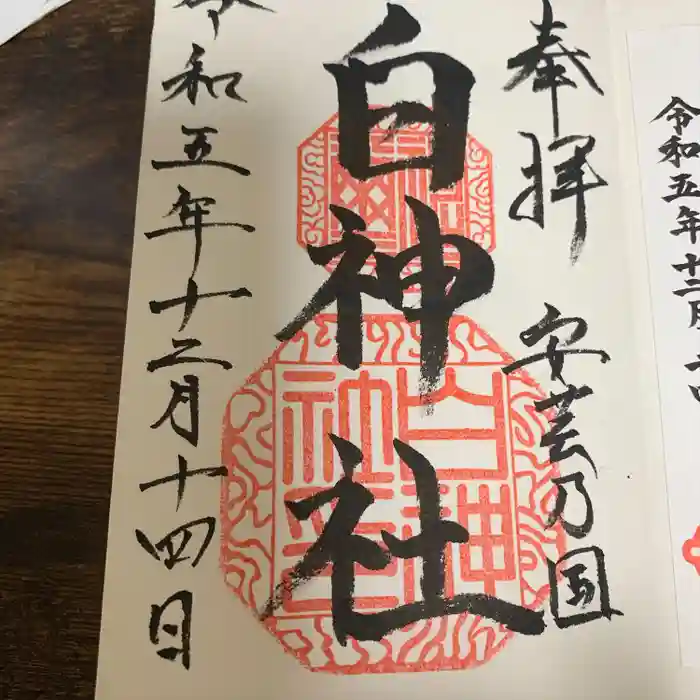 令和五年十二月
奉拝
安芸乃国
白神社
令和五年十二月十四日